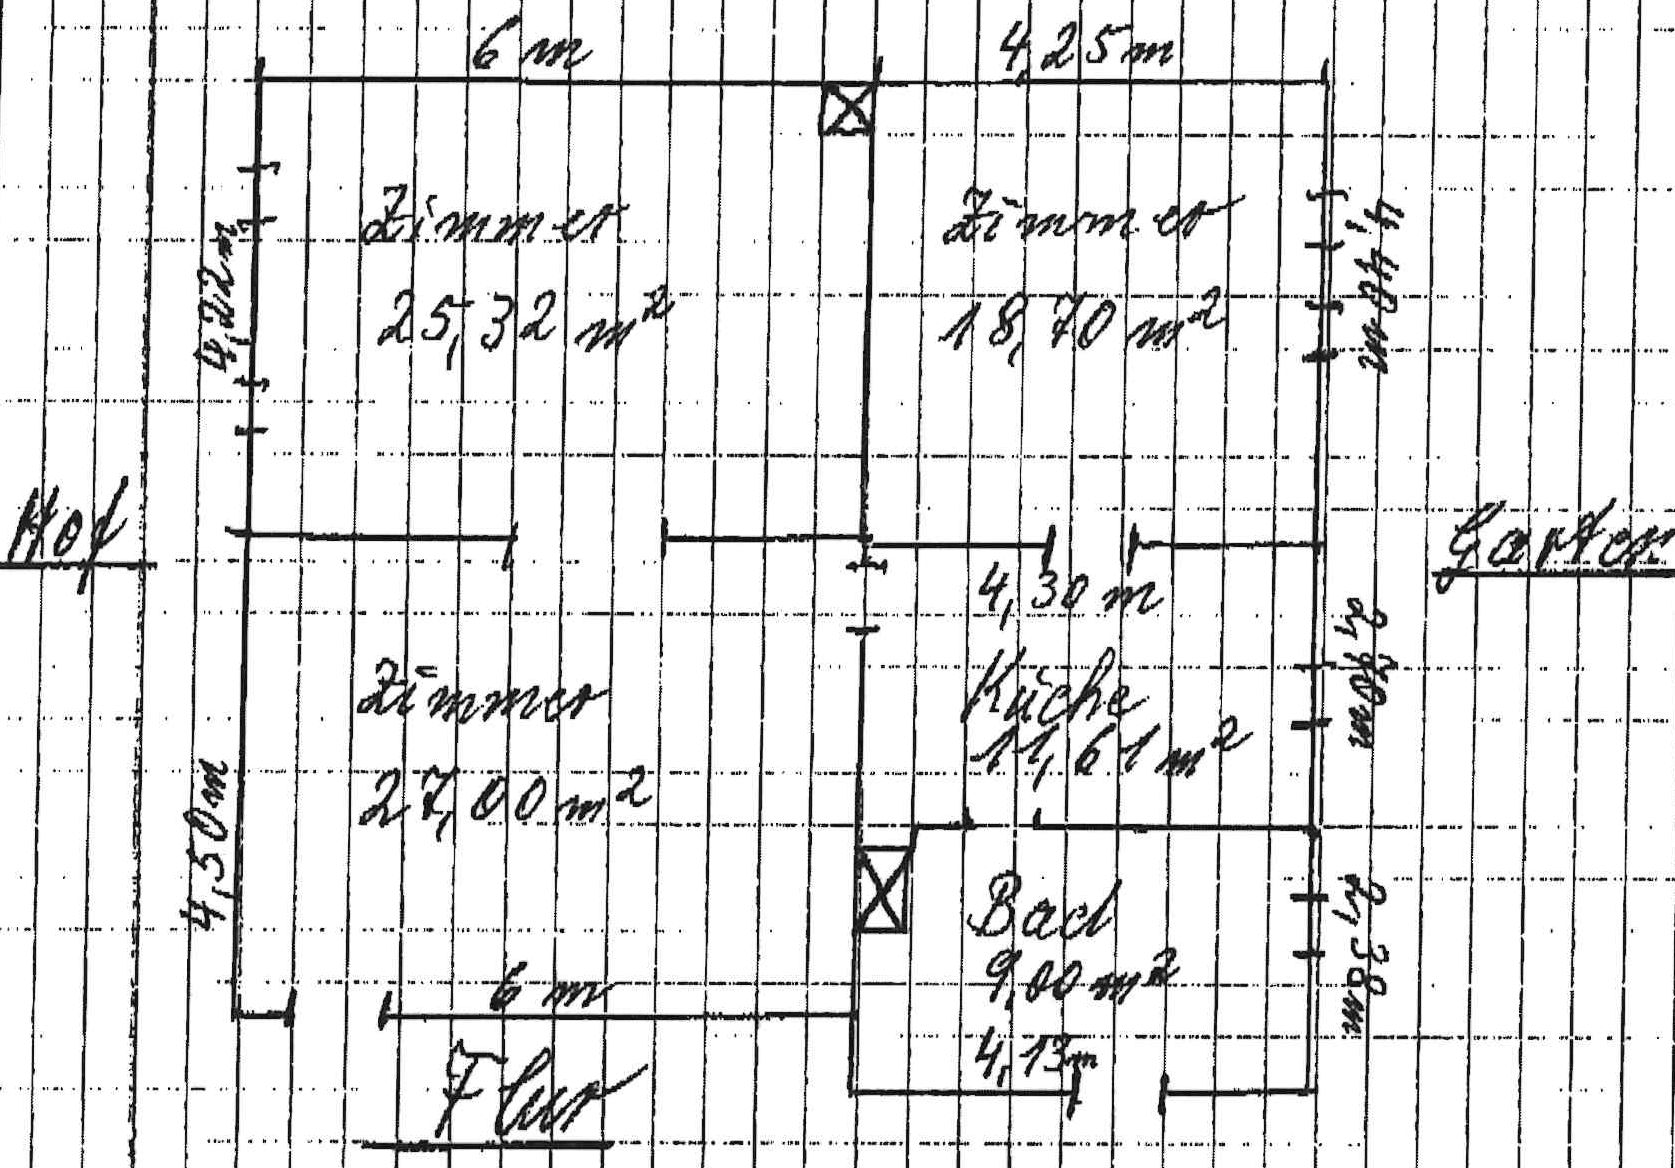 6 m
4,25 m
Zimmer
25,32 m²
Zimmer
18,70 m²
4,22 m
4,40 m
Hof
Garten
4,30 m
Küche
11,61 m²
2,70 m
Zimmer
27,00 m²
4,50 m
Bad
9,00 m²
4,13 m
2,38 m
6 m
Flur